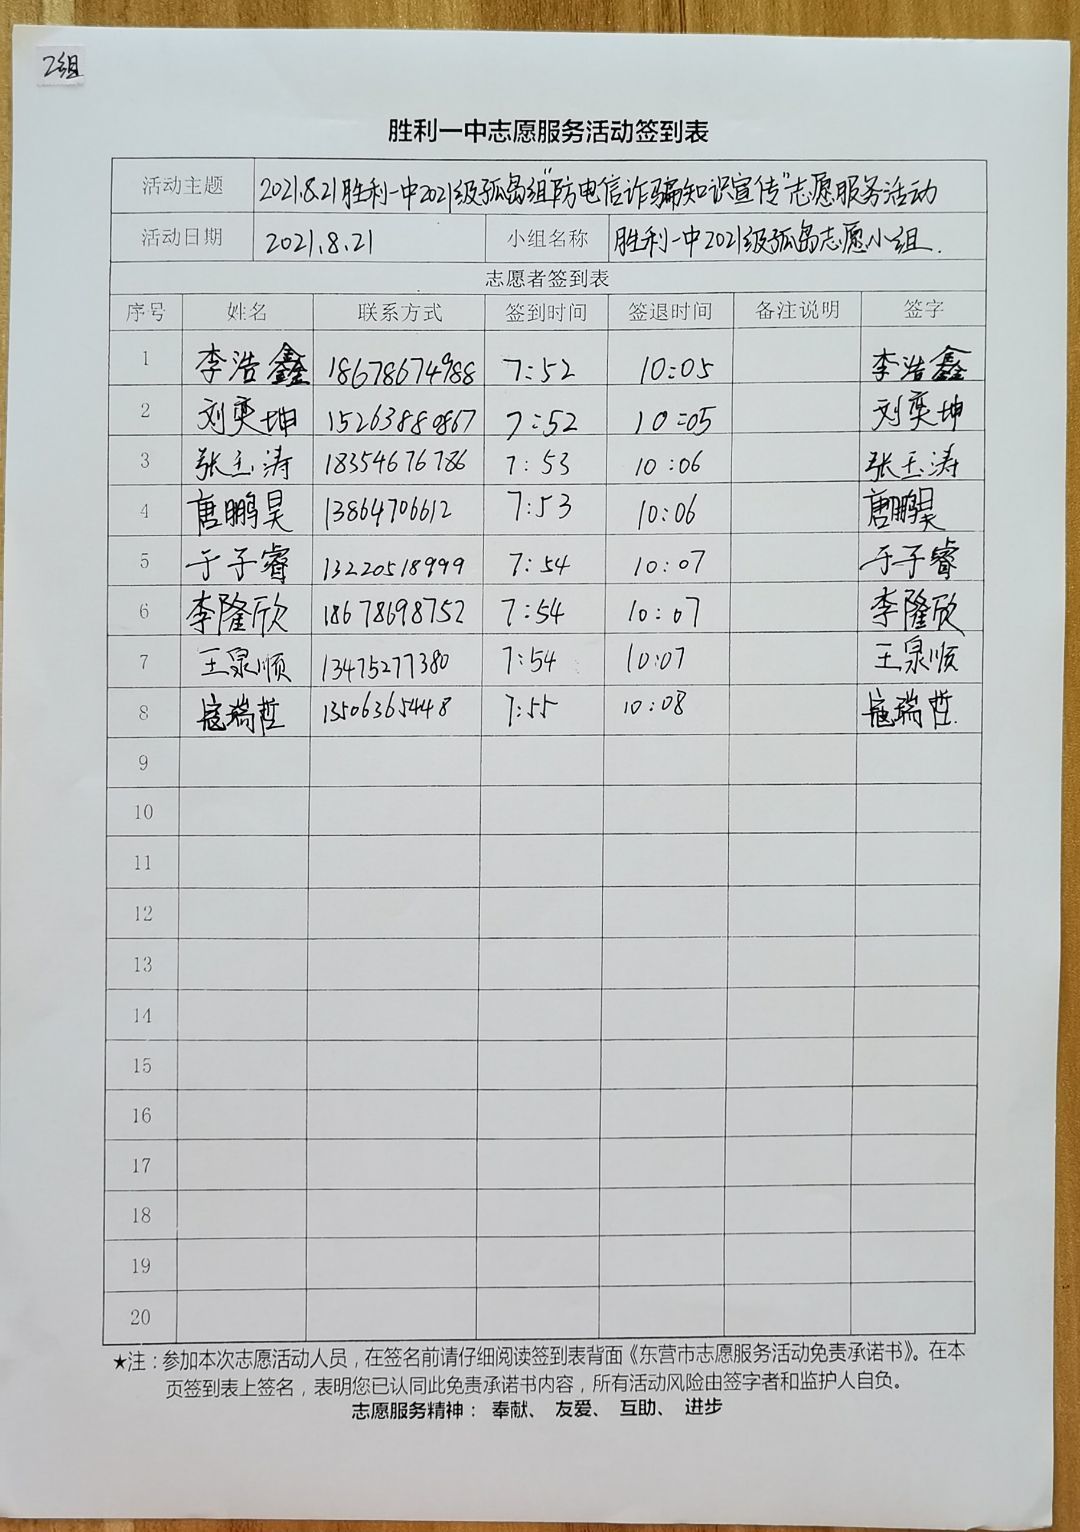 2组
胜利一中志愿服务活动签到表
活动主题 2021.8.21胜利一中2021级孤岛组"防电信诈骗知识宣传"志愿服务活动
活动日期 2021.8.21 小组名称 胜利一中2021级孤岛志愿小组.
志愿者签到表
序号 姓名 联系方式 签到时间 签退时间 备注说明 签字
1 李浩鑫 18678674988 7:52 10:05 李浩鑫
2 刘奕坤 15263880867 7:52 10:05 刘奕坤
3 张玉涛 18354676786 7:53 10:06 张玉涛
4 唐鹏昊 13864706612 7:53 10:06 唐鹏昊
5 于子睿 13220518999 7:54 10:07 于子睿
6 李隆欣 18678698752 7:54 10:07 李隆欣
7 王泉顺 13475277380 7:54 10:07 王泉顺
8 寇瑞哲 13506365448 7:55 10:08 寇瑞哲.
9
10
11
12
13
14
15
16
17
18
19
20
★注：参加本次志愿活动人员，在签名前请仔细阅读签到表背面《东营市志愿服务活动免责承诺书》。在本
页签到表上签名，表明您已认同此免责承诺书内容，所有活动风险由签字者和监护人自负。
志愿服务精神： 奉献、 友爱、 互助、 进步